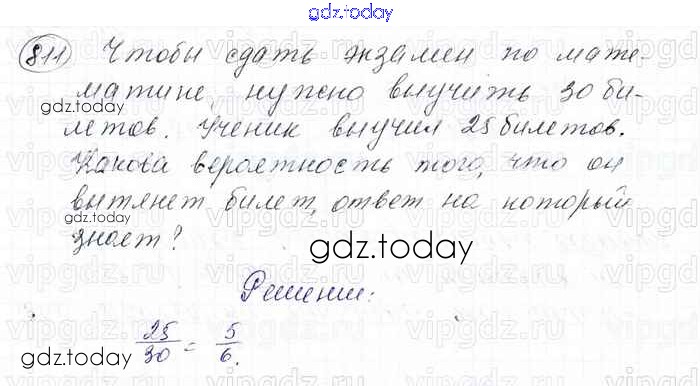 gdz.today
811) Чтобы сдать экзамен по мате-
gdz.today
матике, нужно выучить 30 би-
gdz.today
летов. Ученик выучил 25 билетов.
Какова вероятность того, что он
вытянет билет, ответ на который
gdz.today
знает?
gdz.today
Решение:
25/30 = 5/6.
gdz.today
gdz.today